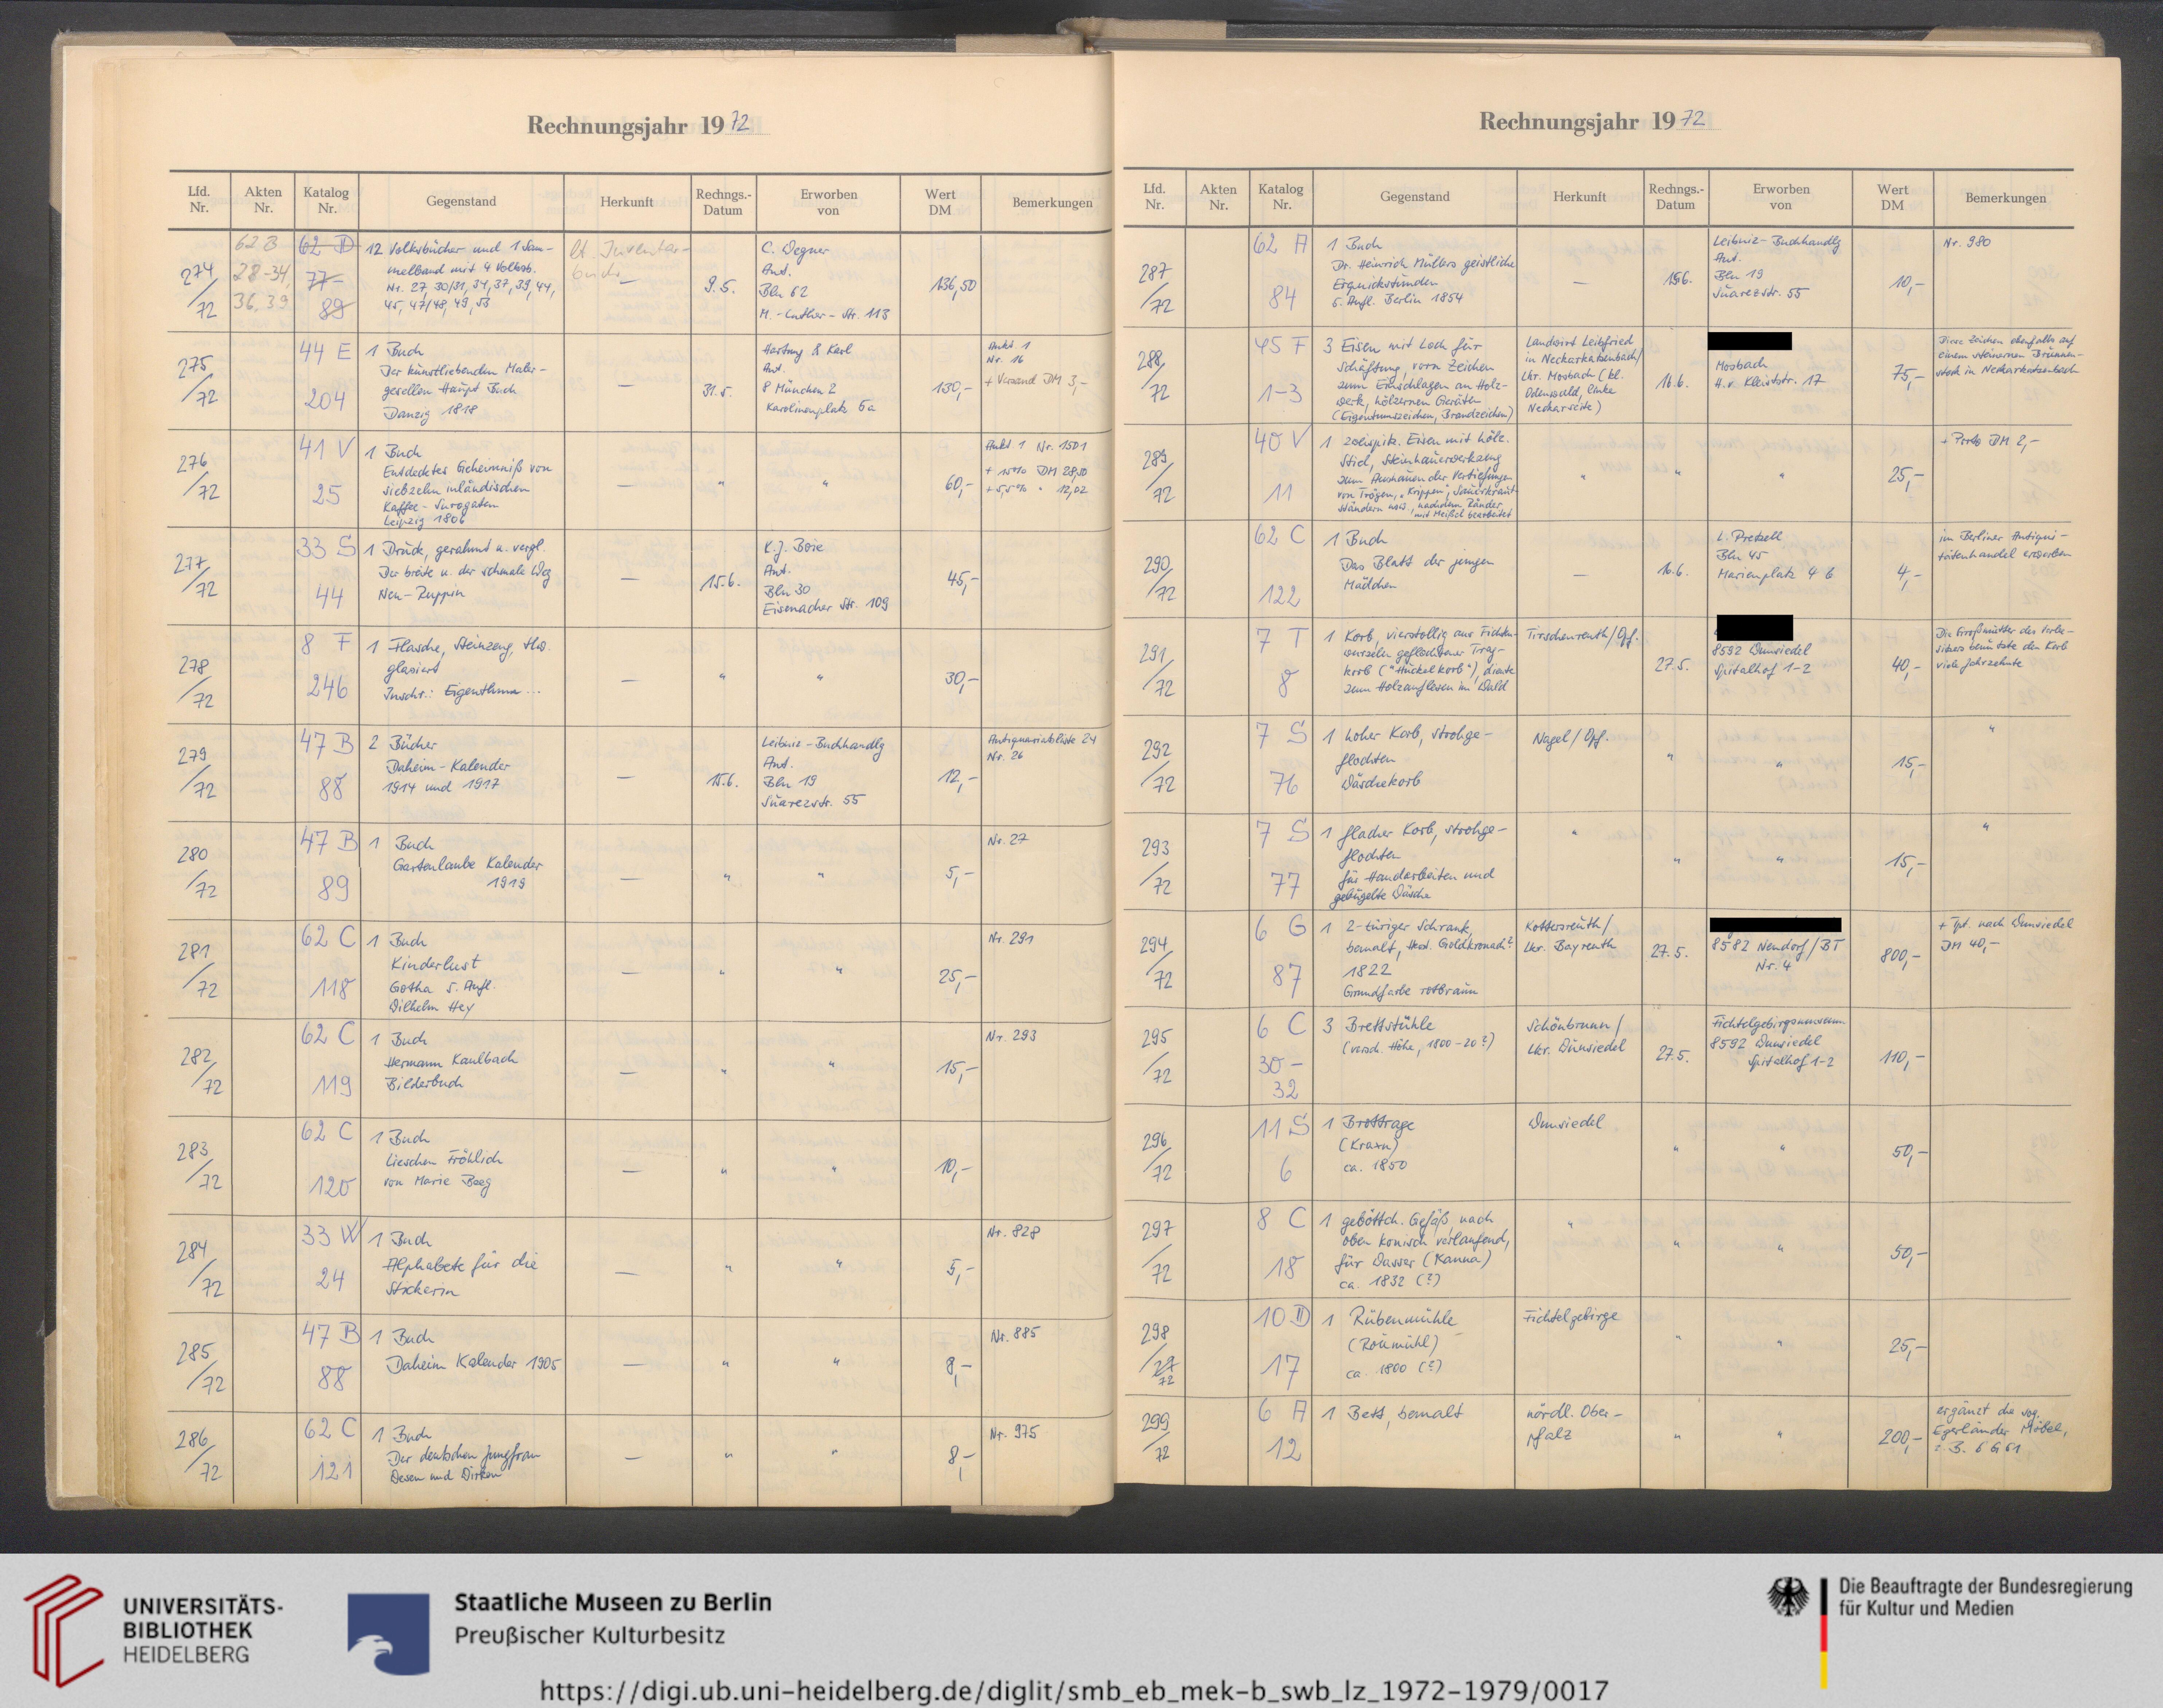 Rechnungsjahr 1972
Lfd. Nr. Akten Nr. Katalog Nr. Gegenstand Herkunft Rechngs.-Datum Erworben von Wert DM Bemerkungen
274/72
62 B
28-34,
36, 39
62 D
77
89
12 Volksbücher und 1 Sam-
melband mit 4 Volksb.
Nr. 27, 30/31, 34, 37, 39, 44,
45, 47/48, 49, 53
lt. Inventar-
buch
—
9.5.
C. Wegner
Ant.
Bln 62
M.-Luther-Str. 113
136,50
275/72
44 E
204
1 Buch
Der kunstliebenden Maler-
gesellen Haupt Buch
Danzig 1818
—
31.5.
Hartung & Karl
Ant.
8 München 2
Karolinenplatz 5a
130,-
Aukt 1
Nr. 16
+ Versand DM 3,-
276/72
41 V
25
1 Buch
Entdecktes Geheimniß von
siebzehn inländischen
Kaffee-Surogaten
Leipzig 1806
—
"
"
60,-
Aukt. 1 Nr. 1501
+ 15% DM 28,50
+ 5,5% " 12,02
277/72
33 S
44
1 Druck, gerahmt u. vergl.
Der breite u. der schmale Weg
Neu-Ruppin
—
15.6.
K.J. Boie
Ant.
Bln 30
Eisenacher Str. 109
45,-
278/72
8 F
246
1 Flasche, Steinzeug,
glasiert
Inschr.: Eigenthum ...
—
"
"
30,-
279/72
47 B
88
2 Bücher
Daheim-Kalender
1914 und 1917
—
15.6.
Leibniz-Buchhandlg
Ant.
Bln 19
Suarezstr. 55
12,-
Antiquariatsliste 24
Nr. 26
280/72
47 B
89
1 Buch
Gartenlaube Kalender
1919
—
"
"
5,-
Nr. 27
281/72
62 C
118
1 Buch
Kinderlust
Gotha 5. Aufl.
Wilhelm Hey
—
"
"
25,-
Nr. 291
282/72
62 C
119
1 Buch
Hermann Kaulbach
Bilderbuch
—
"
"
15,-
Nr. 293
283/72
62 C
120
1 Buch
Lieschen Fröhlich
von Marie Beeg
—
"
"
10,-
284/72
33 W
24
1 Buch
Alphabete für die
Stickerin
—
"
"
5,-
Nr. 828
285/72
47 B
88
1 Buch
Daheim Kalender 1905
—
"
"
8,-
Nr. 885
286/72
62 C
121
1 Buch
Der deutschen Jungfrau
Wesen und Wirken
—
"
"
8,-
Nr. 975
Rechnungsjahr 1972
Lfd. Nr. Akten Nr. Katalog Nr. Gegenstand Herkunft Rechngs.-Datum Erworben von Wert DM Bemerkungen
287/72
62 A
84
1 Buch
Dr. Heinrich Müllers geistliche
Erquickstunden
5. Aufl. Berlin 1854
—
15.6.
Leibniz-Buchhandlg
Ant.
Bln 19
Suarezstr. 55
10,-
Nr. 980
288/72
45 F
1-3
3 Eisen mit Loch für
Schäftung, vorn Zeichen
zum Einschlagen an Holz-
werk, hölzernen Geräten
(Eigentumszeichen, Brandzeichen)
Landwirt Leibfried
in Neckarkatzenbach/
Lkr. Mosbach (kl.
Odenwald, linke
Neckarseite)
16.6.
Mosbach
H.v. Kleiststr. 17
75,-
Diese Zeichen ebenfalls auf
einem steinernen Brunnen-
stock in Neckarkatzenbach
289/72
40 V
11
1 zweispitz. Eisen mit hölz.
Stiel, Steinhauerwerkzeug
zum Aushauen der Vertiefungen
von Trögen, "Krippen", Sauerkraut-
ständern usw., nachdem Ränder
mit Meißel bearbeitet
"
"
"
25,-
+ Porto DM 2,-
290/72
62 C
122
1 Buch
Das Blatt der jungen
Mädchen
—
16.6.
L. Pretzell
Bln 45
Marienplatz 4 b
4,-
im Berliner Antiqui-
tätenhandel erworben
291/72
7 T
8
1 Korb, vierstollig aus Fichten-
wurzeln geflochtener Trag-
korb ("Huckelkorb"), diente
zum Holzauflesen im Wald
Tirschenreuth/Opf.
27.5.
8592 Wunsiedel
Spitalhof 1-2
40,-
Die Großmutter des Vorbe-
sitzers benützte den Korb
viele Jahrzehnte
292/72
7 S
76
1 hoher Korb, strohge-
flochten
Wäschekorb
Nagel/Opf.
"
"
15,-
"
293/72
7 S
77
1 flacher Korb, strohge-
flochten
für Handarbeiten und
gebügelte Wäsche
"
"
"
15,-
"
294/72
6 G
87
1 2-türiger Schrank,
bemalt, Goldkronach?
1822
Grundfarbe rotbraun
Kottersreuth/
Lkr. Bayreuth
27.5.
8582 Neudorf/BT
Nr. 4
800,-
+ Tpt. nach Wunsiedel
DM 40,-
295/72
6 C
30-
32
3 Brettstühle
(versch. Höhe, 1800-20?)
Schönbrunn/
Lkr. Wunsiedel
27.5.
Fichtelgebirgsmuseum
8592 Wunsiedel
Spitalhof 1-2
110,-
296/72
11 S
6
1 Brottrage
(Kraxn)
ca. 1850
Wunsiedel
"
"
50,-
297/72
8 C
18
1 geböttch. Gefäß, nach
oben konisch verlaufend,
für Wasser (Kanna)
ca. 1832 (?)
"
"
"
50,-
298/72
10 D
17
1 Rübenmühle
(Roümühl)
ca. 1800 (?)
Fichtelgebirge
"
"
25,-
299/72
6 A
12
1 Bett, bemalt
nördl. Ober-
pfalz
"
"
200,-
ergänzt die sog.
Egerländer Möbel,
z.B. 6 G 61
UNIVERSITÄTS-
BIBLIOTHEK
HEIDELBERG
Staatliche Museen zu Berlin
Preußischer Kulturbesitz
Die Beauftragte der Bundesregierung
für Kultur und Medien
https://digi.ub.uni-heidelberg.de/diglit/smb_eb_mek-b_swb_lz_1972-1979/0017